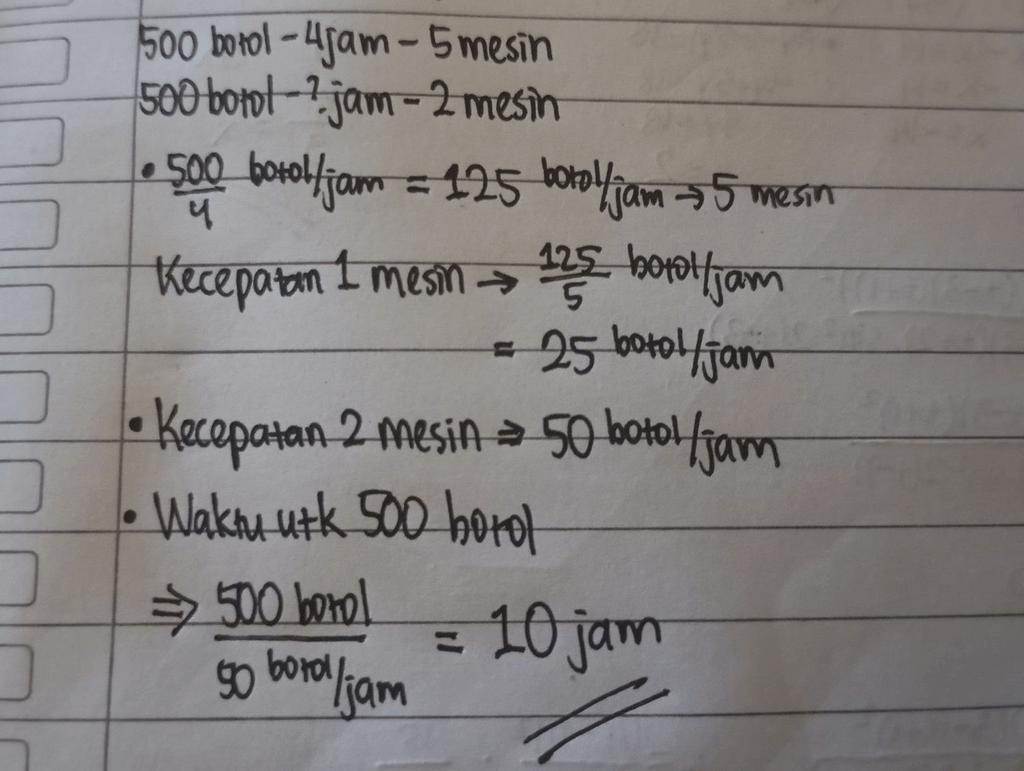 500 botol - 4 jam - 5 mesin
500 botol - ? jam - 2 mesin
• 500/4 botol/jam = 125 botol/jam → 5 mesin
Kecepatan 1 mesin → 125/5 botol/jam
= 25 botol/jam
• Kecepatan 2 mesin ⇒ 50 botol/jam
• Waktu utk 500 botol
⇒ 500 botol / 50 botol/jam = 10 jam